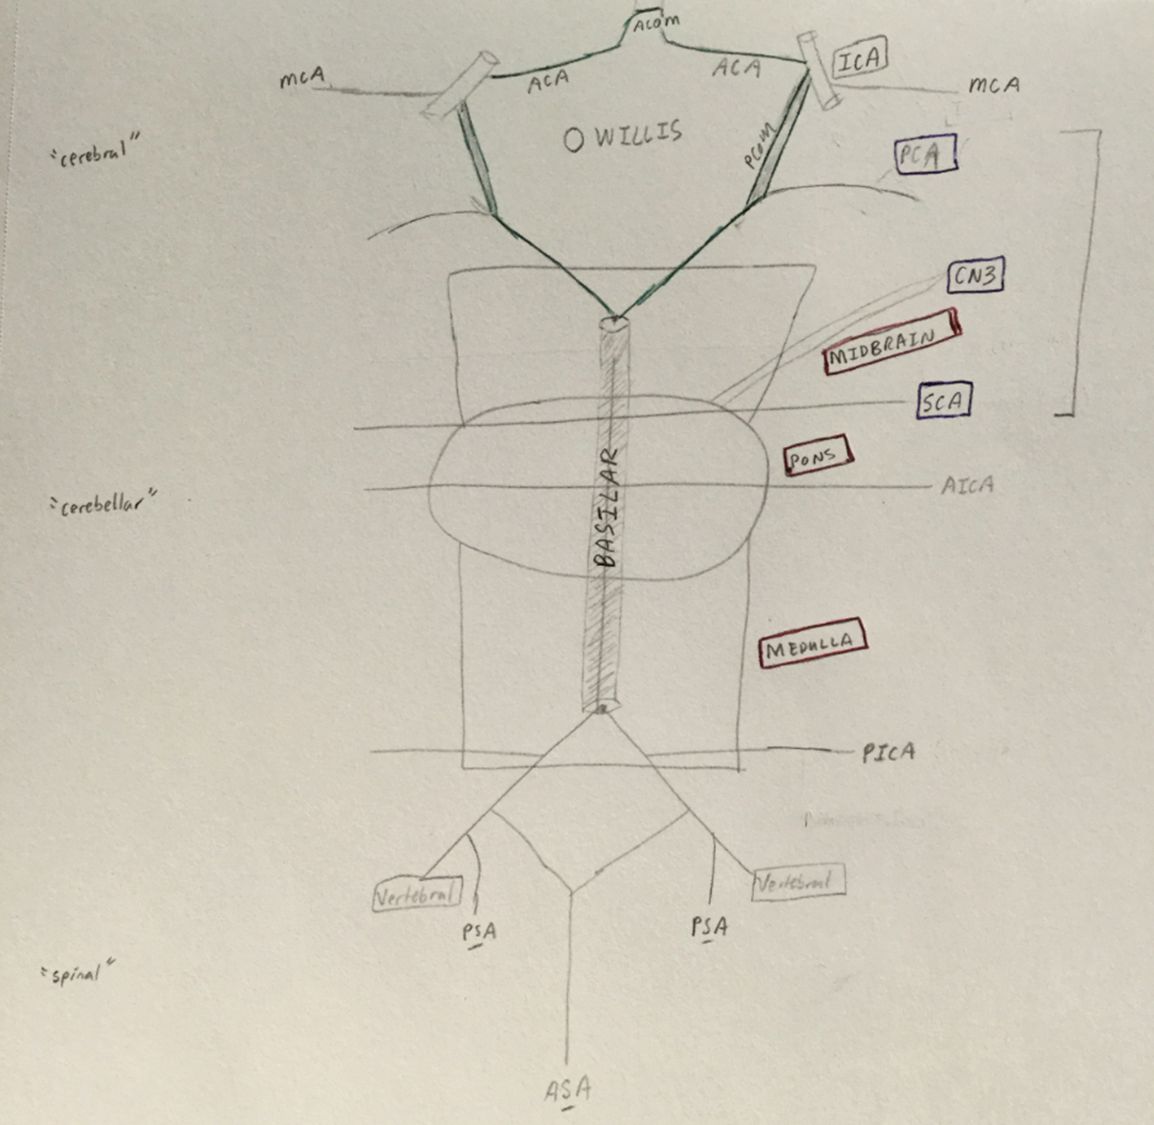 ACom
MCA
ACA
ACA
ICA
MCA
O WILLIS
PCOM
"cerebral"
PCA
CN3
MIDBRAIN
SCA
PONS
AICA
"cerebellar"
BASILAR
MEDULLA
PICA
Vertebral
Vertebral
PSA
PSA
"spinal"
ASA